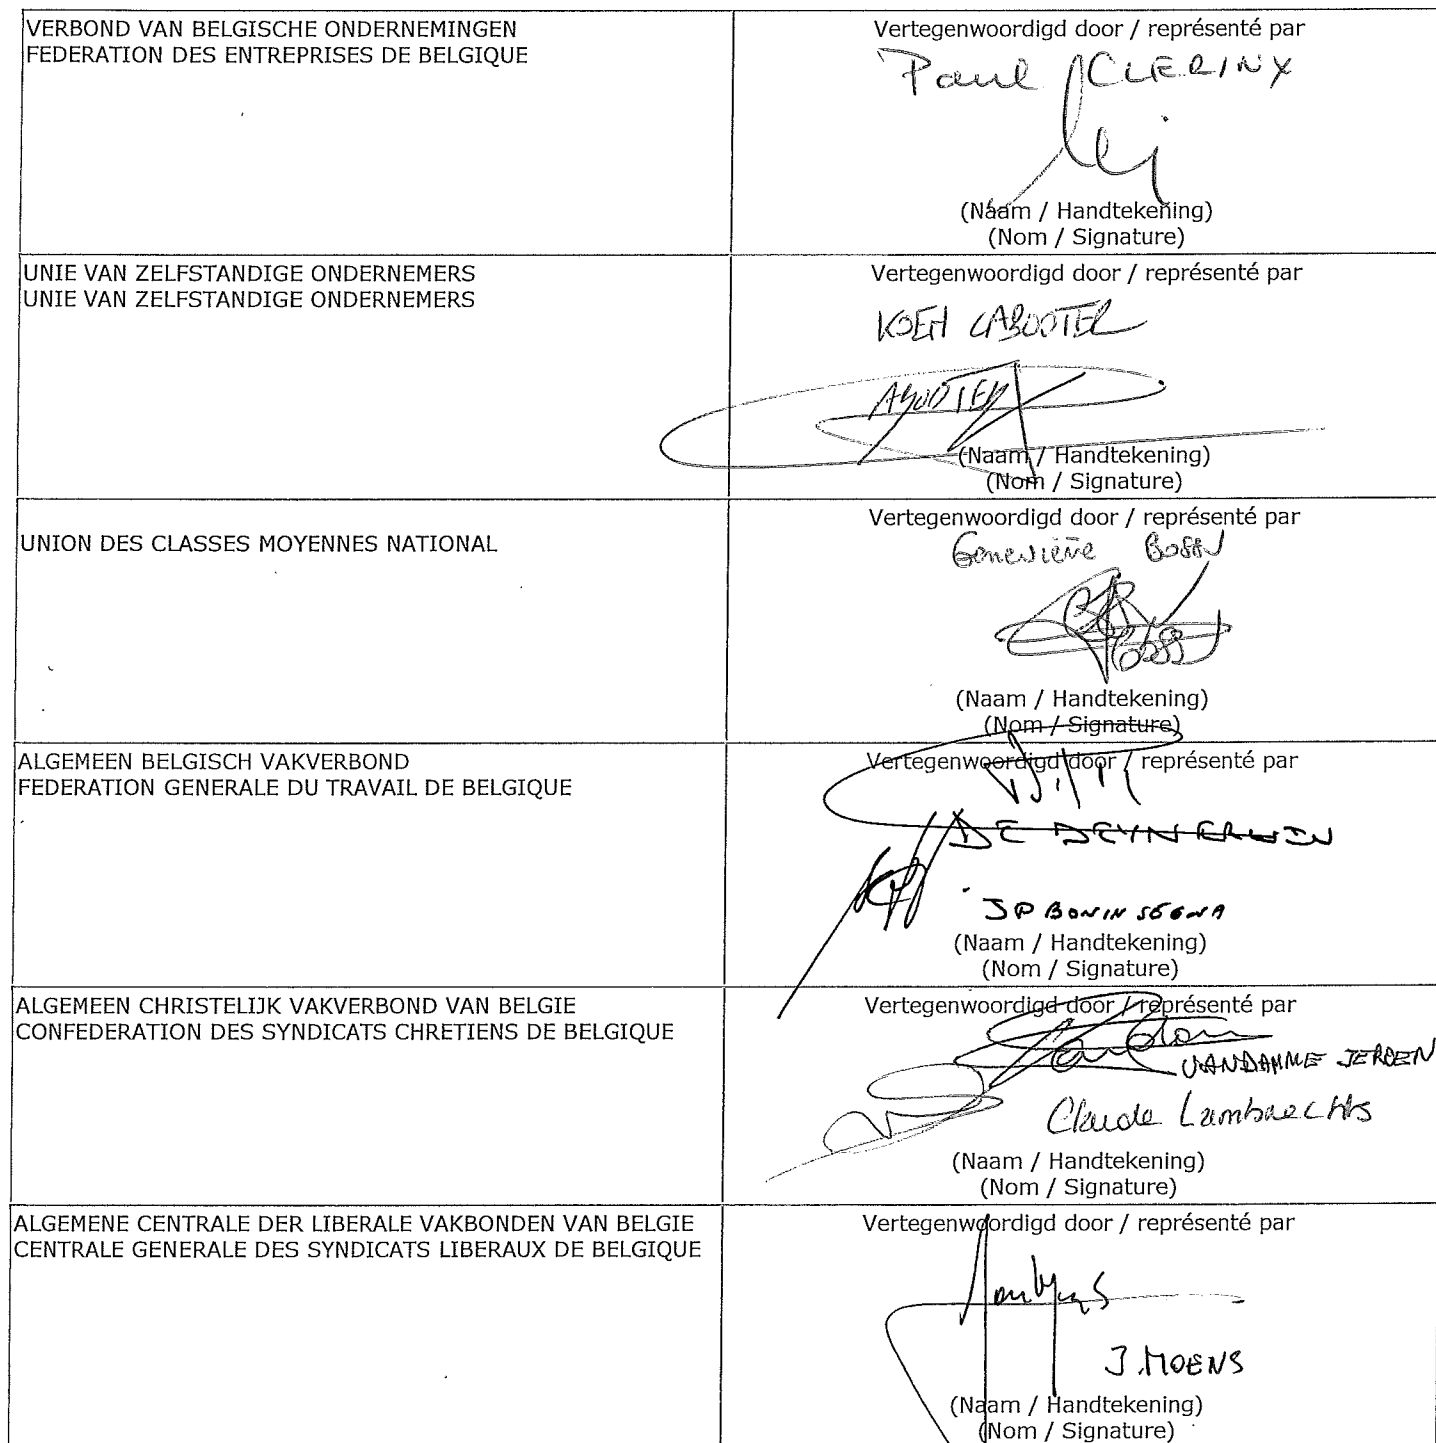 VERBOND VAN BELGISCHE ONDERNEMINGEN
FEDERATION DES ENTREPRISES DE BELGIQUE
Vertegenwoordigd door / représenté par
Paul CLERINX
(Naam / Handtekening)
(Nom / Signature)
UNIE VAN ZELFSTANDIGE ONDERNEMERS
UNIE VAN ZELFSTANDIGE ONDERNEMERS
Vertegenwoordigd door / représenté par
KOEN CABOOTER
(Naam / Handtekening)
(Nom / Signature)
UNION DES CLASSES MOYENNES NATIONAL
Vertegenwoordigd door / représenté par
Geneviève
(Naam / Handtekening)
(Nom / Signature)
ALGEMEEN BELGISCH VAKVERBOND
FEDERATION GENERALE DU TRAVAIL DE BELGIQUE
Vertegenwoordigd door / représenté par
DE DEYN ERWIN
JP BONINSEGNA
(Naam / Handtekening)
(Nom / Signature)
ALGEMEEN CHRISTELIJK VAKVERBOND VAN BELGIE
CONFEDERATION DES SYNDICATS CHRETIENS DE BELGIQUE
Vertegenwoordigd door / représenté par
VANDAMME JEROEN
Claude Lambrechts
(Naam / Handtekening)
(Nom / Signature)
ALGEMENE CENTRALE DER LIBERALE VAKBONDEN VAN BELGIE
CENTRALE GENERALE DES SYNDICATS LIBERAUX DE BELGIQUE
Vertegenwoordigd door / représenté par
J. MOENS
(Naam / Handtekening)
(Nom / Signature)